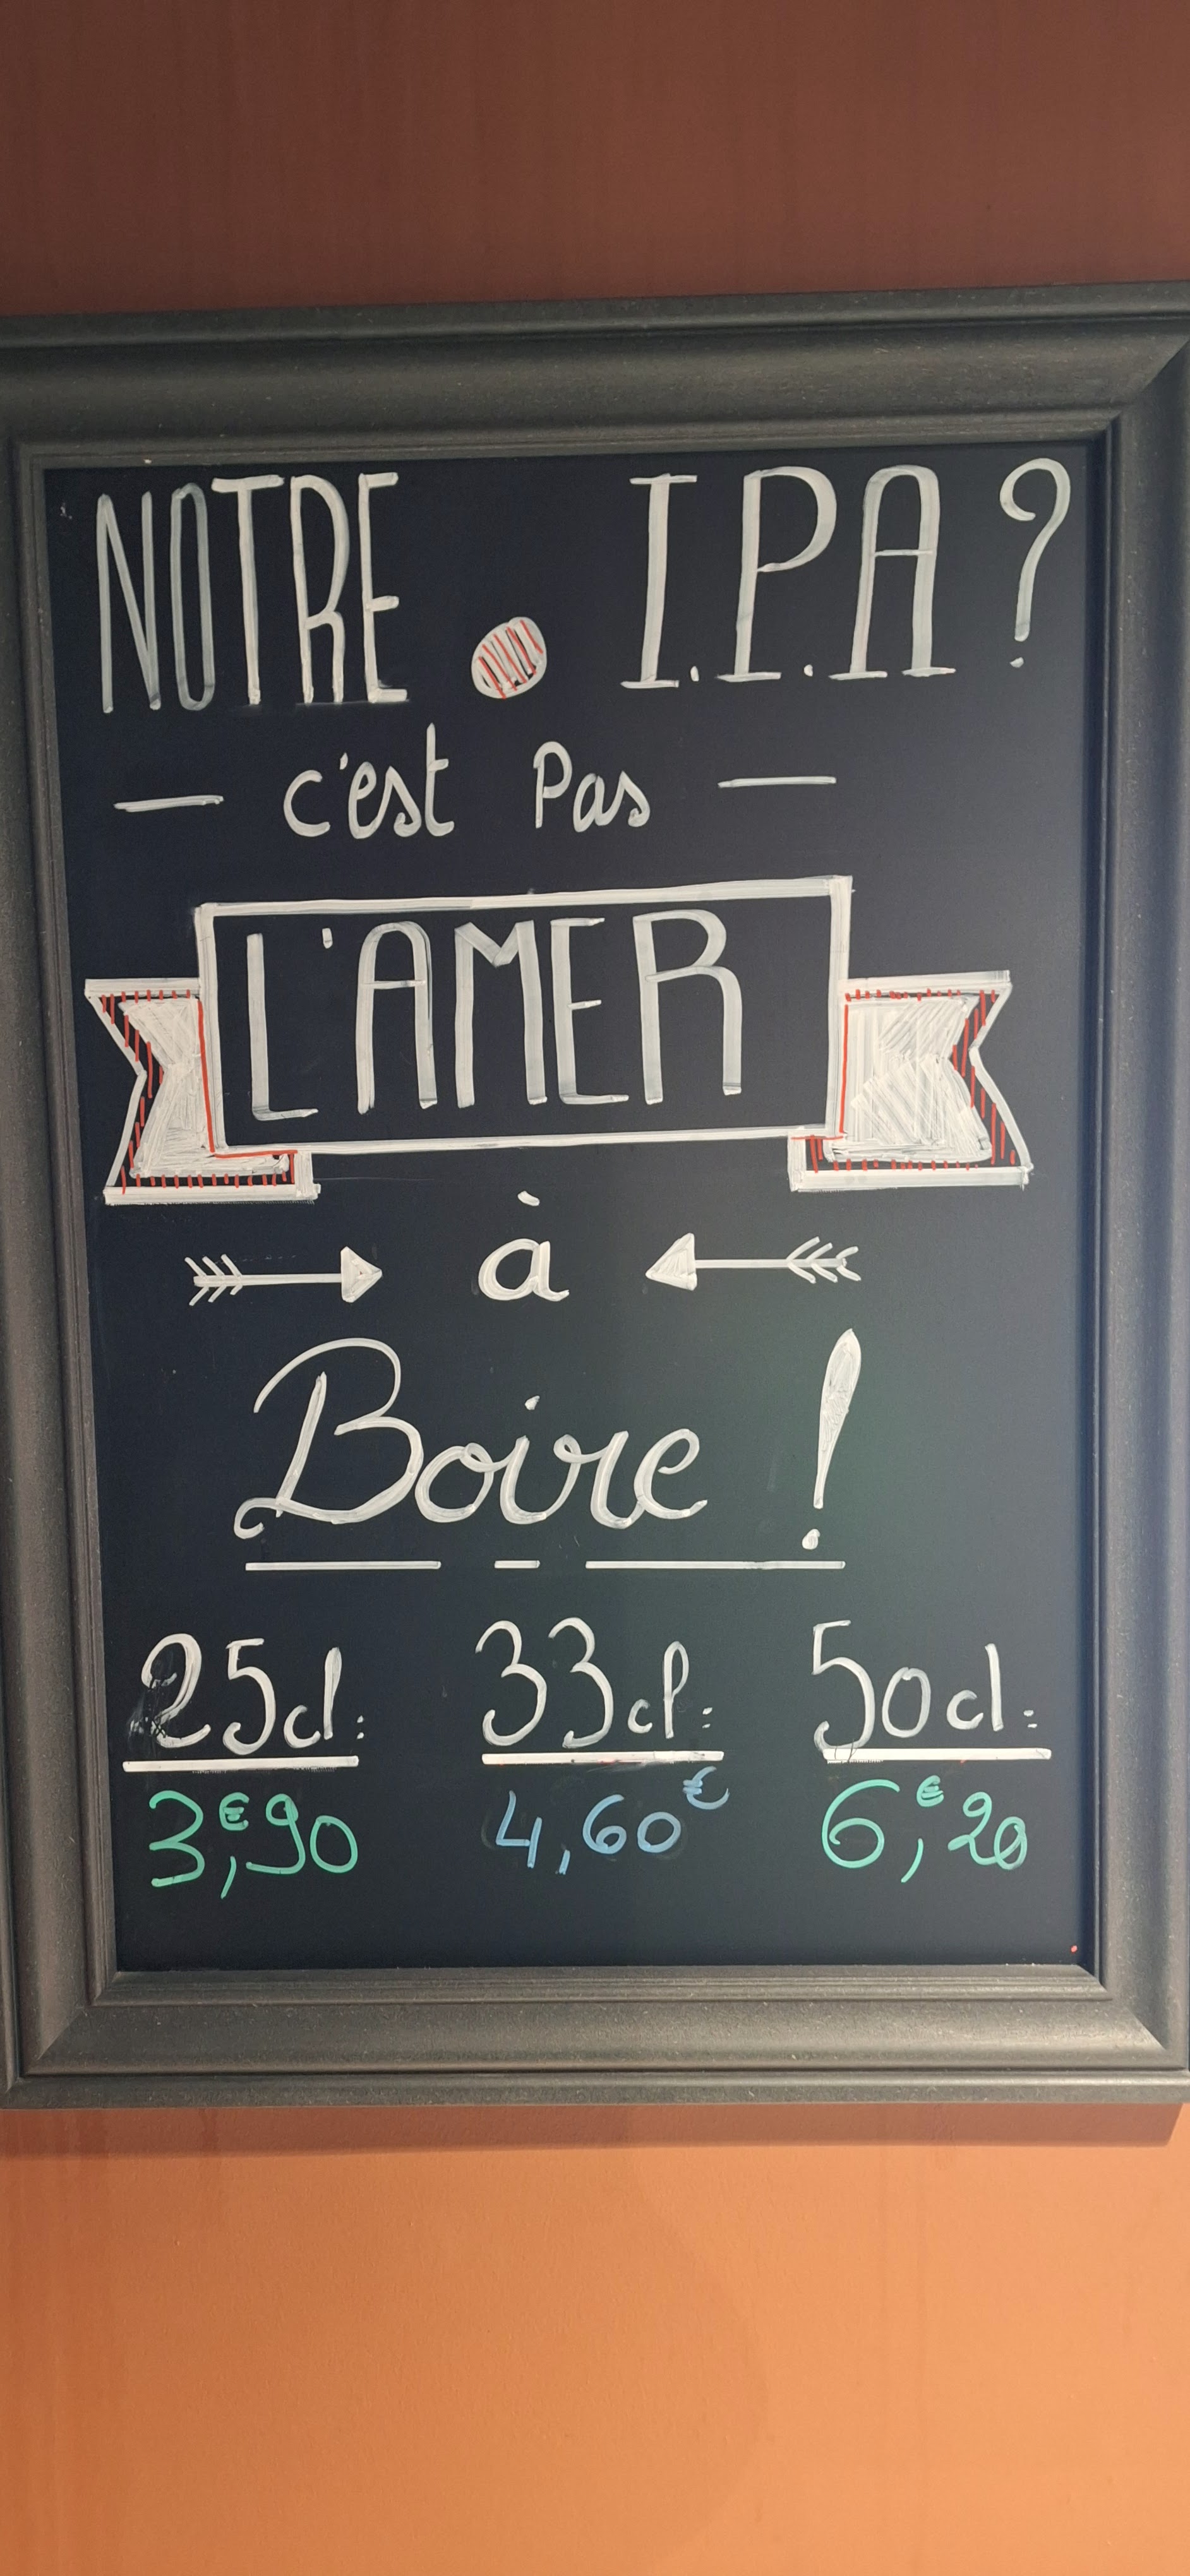 NOTRE I.P.A ?
c'est Pas
L'AMER
à
Boire !
25cl: 33cl: 50cl:
3,€90 4,60€ 6,€20